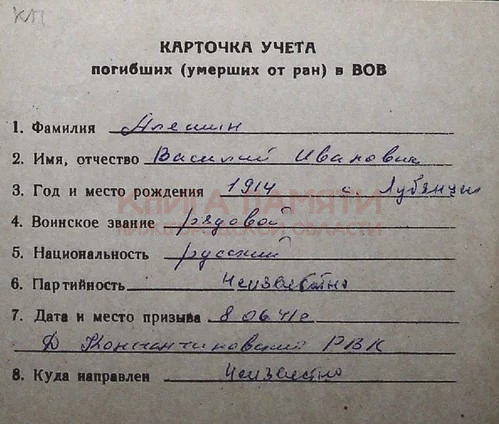 КМ
КАРТОЧКА УЧЕТА
погибших (умерших от ран) в ВОВ
1. Фамилия Алешин
2. Имя, отчество Василий Иванович
3. Год и место рождения 1914 с. Лубянцы
КНИГА ПАМЯТИ
4. Воинское звание рядовой
ОБЛАСТИ
5. Национальность русский
6. Партийность Неизвестно
7. Дата и место призыва 8 06 41г
Д Константиновский РВК
8. Куда направлен Неизвестно